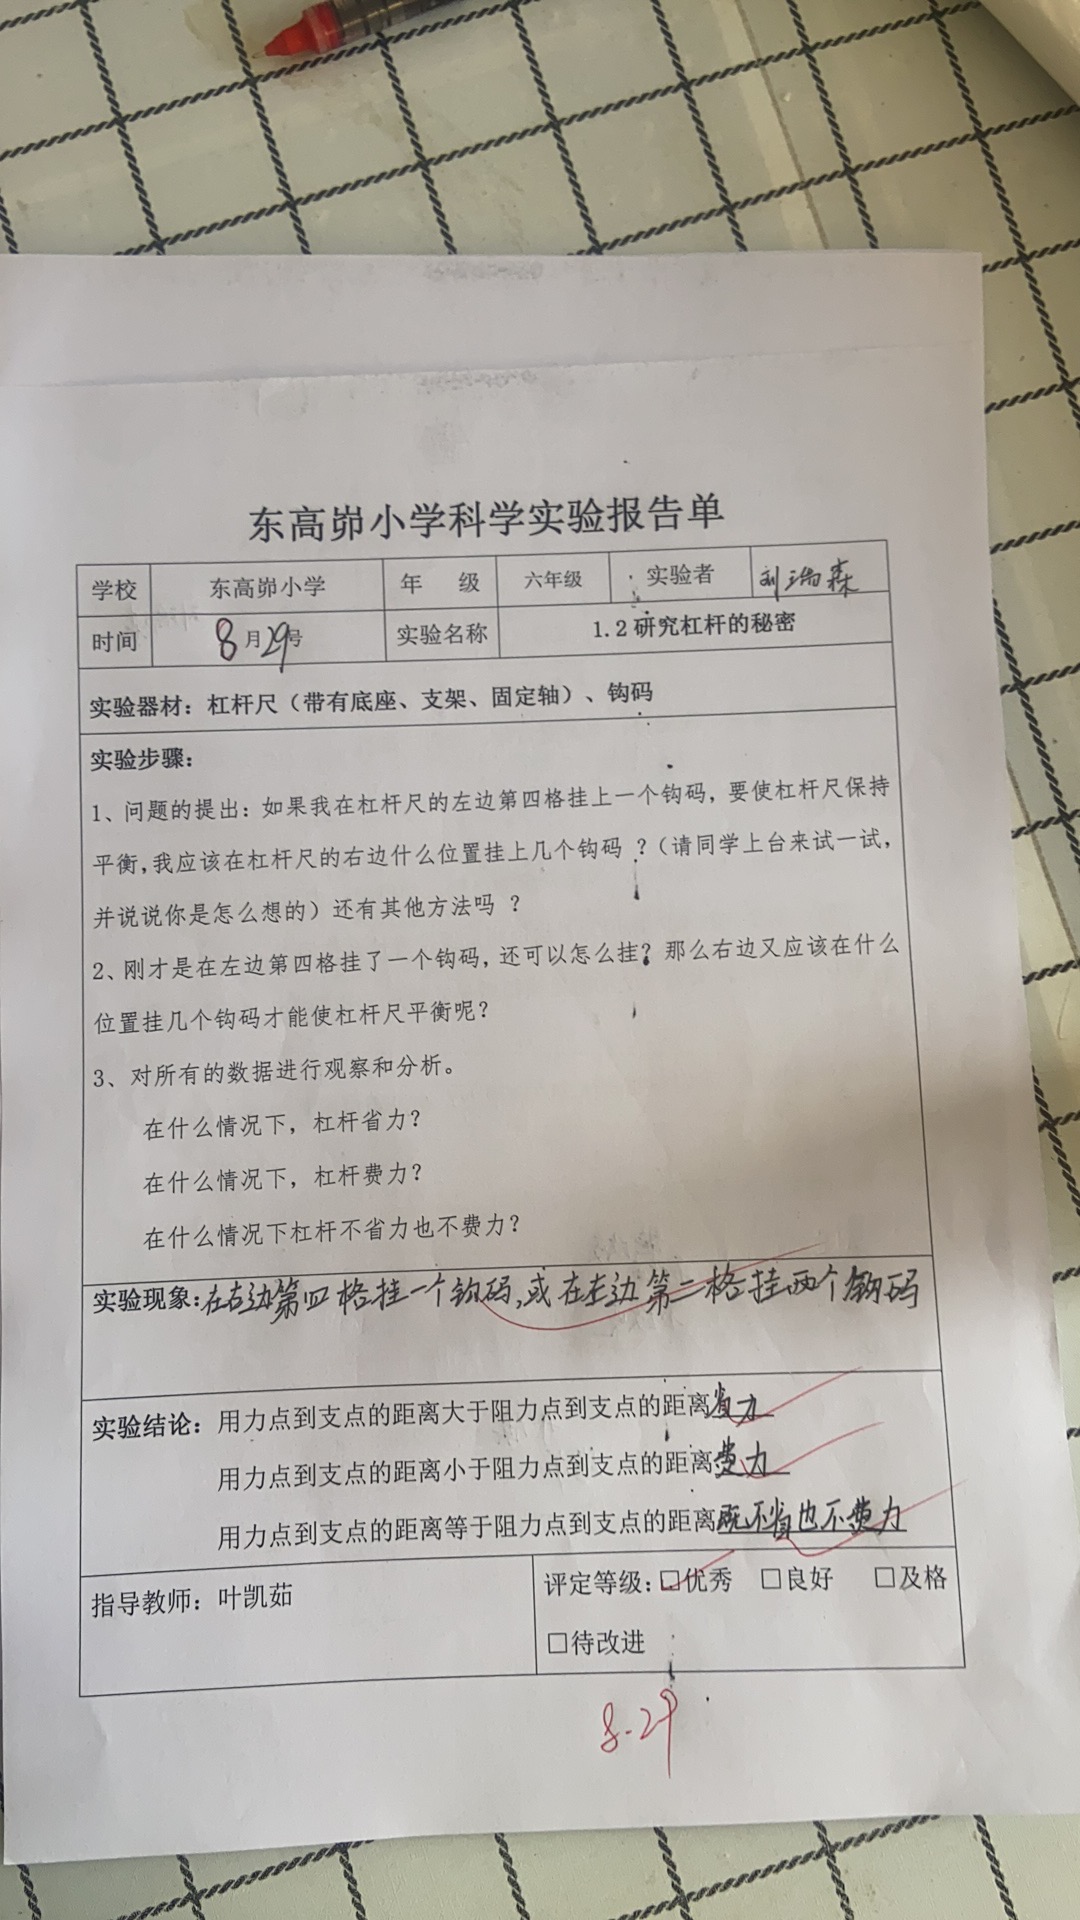 东高峁小学科学实验报告单
学校 东高峁小学 年 级 六年级 实验者 刘瑞森
时间 8月29号 实验名称 1.2 研究杠杆的秘密
实验器材：杠杆尺（带有底座、支架、固定轴）、钩码
实验步骤：
1、问题的提出：如果我在杠杆尺的左边第四格挂上一个钩码，要使杠杆尺保持
平衡，我应该在杠杆尺的右边什么位置挂上几个钩码 ？（请同学上台来试一试，
并说说你是怎么想的）还有其他方法吗 ？
2、刚才是在左边第四格挂了一个钩码，还可以怎么挂？那么右边又应该在什么
位置挂几个钩码才能使杠杆尺平衡呢？
3、对所有的数据进行观察和分析。
在什么情况下，杠杆省力？
在什么情况下，杠杆费力？
在什么情况下杠杆不省力也不费力？
实验现象：在右边第四格挂一个钩码，或在左边第二格挂两个钩码
实验结论：用力点到支点的距离大于阻力点到支点的距离省力
用力点到支点的距离小于阻力点到支点的距离费力
用力点到支点的距离等于阻力点到支点的距离既不省也不费力
指导教师：叶凯茹 评定等级：☐优秀 ☐良好 ☐及格
☐待改进
8.29